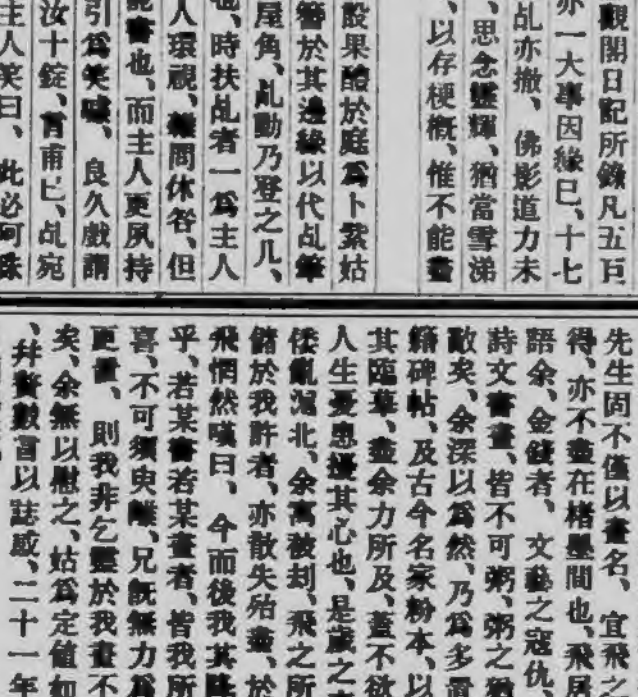 觀閣日記所錄凡五百
亦一大事因緣已、十七
乩亦撤、佛影道力未
、思念靈輝、猶當雪涕
、以存梗概、惟不能盡
設果醴於庭爲卜紫姑
簪於其邊緣以代乩筆
屋角、乩動乃登之几、
也、時扶乩者一爲主人
人環視、雜問休咎、但
能書也、而主人更夙持
引爲笑噱、良久戲謂
汝十錠、肯甫已、乩宛
主人笑曰、此必阿姝
先生固不僅以畫名、宜飛之
得、亦不盡在楮墨間也、飛
語余、金錢者、文藝之寇仇
詩文書畫、皆不可粥、粥之
散矣、余深以爲然、乃爲多
籍碑帖、及古今名家粉本、以
其臨摹、盡余力所及、蓋不欲
人生憂患擾其心也、是歲之
倭亂滬北、余寓被刦、飛之所
儲於我許者、亦散失殆盡、於
飛惘然嘆曰、今而後我其
乎、若某書若某畫者、皆我所
喜、不可須臾離、兄既無力爲
更置、則我非乞靈於我畫不
矣、余無以慰之、姑爲定值如
、幷贅數言以誌感、二十一年